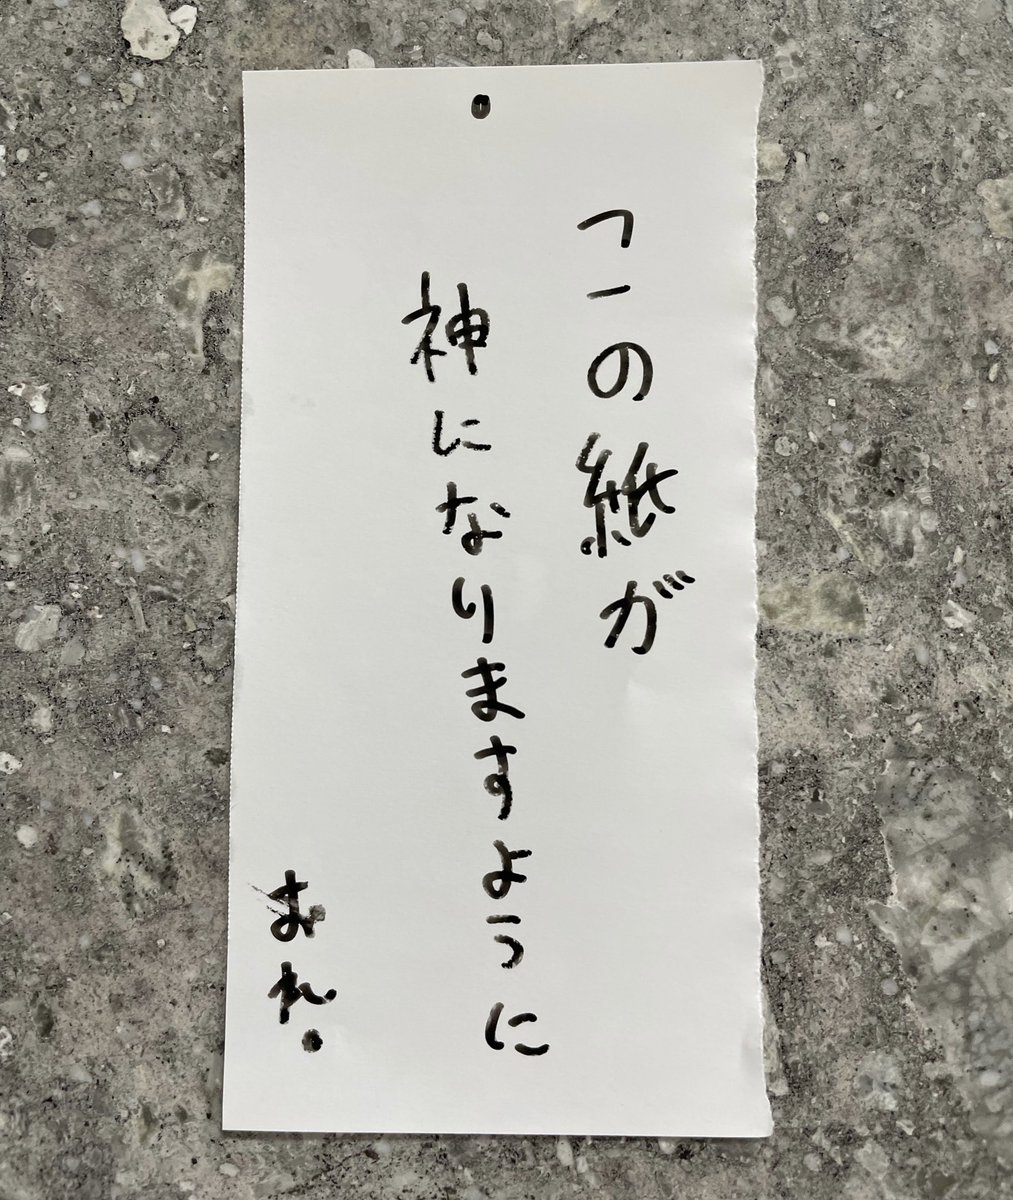 この紙が
神になりますように
おれ。